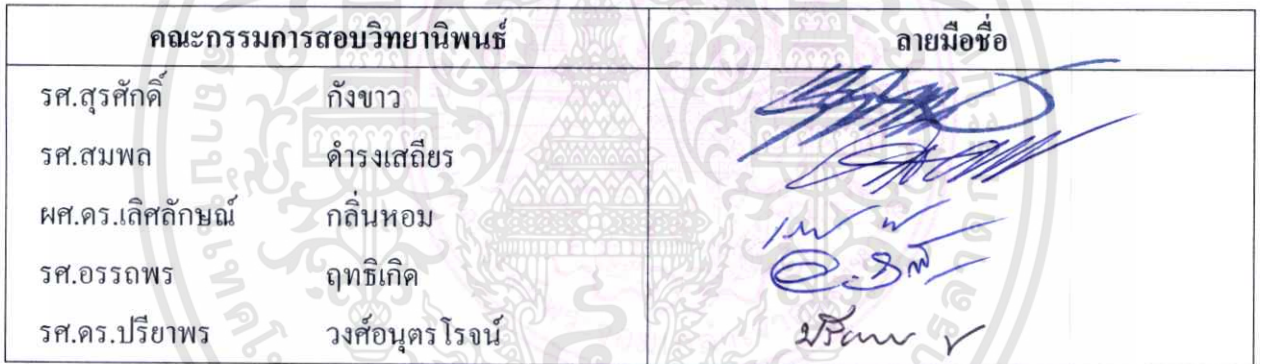 คณะกรรมการสอบวิทยานิพนธ์ ลายมือชื่อ
รศ.สุรศักดิ์ กังขาว
รศ.สมพล ดำรงเสถียร
ผศ.ดร.เลิศลักษณ์ กลิ่นหอม
รศ.อรรถพร ฤทธิเกิด
รศ.ดร.ปรียาพร วงศ์อนุตรโรจน์